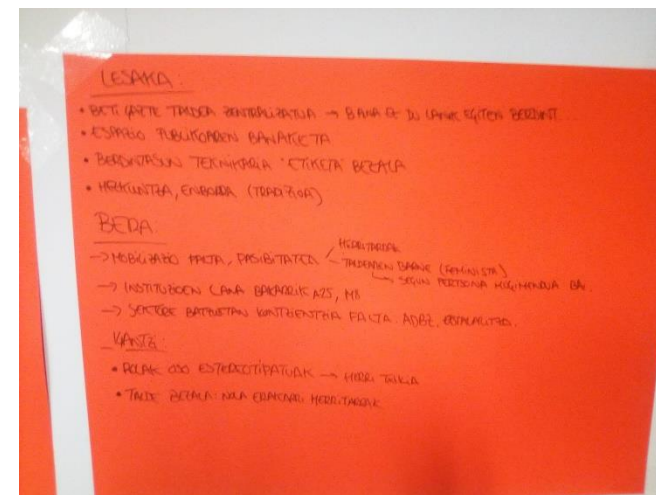 LESAKA:
• BETI GAZTE TALDEA ZENTRALIZATUA → BANA EZ DU LANIK EGITEN BERDINT...
• ESPAZIO PUBLIKOAREN BANAKETA
• BERDINTASUN TEKNIKARIA "ETIKETA" BEZALA
• HEZKUNTZA, ENBORRA (TRADIZIOA)
BERA:
→ MOBILIZAZIO FALTA, PASIBITATEA HERRITARRAK
TALDEAREN BARNE (FEMINISTA)
SEGUN PERTSONA MUGIMENDUA BAI.
→ INSTITUZIOEN LANA BAKARRIK A25, M8
→ SEKTORE BATZUETAN KONTZIENTZIA FALTA. ADBZ.
IGANTZI:
• ROLAK OSO ESTEREOTIPATUAK → HERRI TXIKIA
• TALDE BEZALA: NOLA ERAKARRI HERRITARRAK